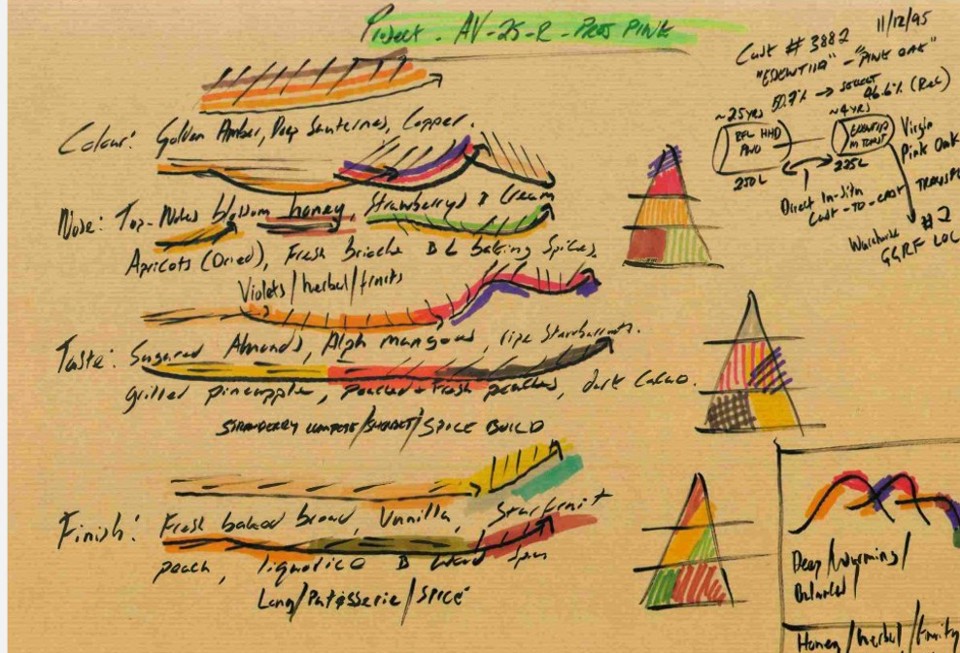 Project - AV-25-R - PROJ PINK
11/12/95
Cask # 3882
"EDENTIIA" - "PINK OAK"
50.7% → SELECT
46.6% (Red)
~25YRS
~4YRS
REF HHD
250L
225L
Virgin
Pink Oak
Direct In-Situ
Cask-To-Cask
TRANSPO
Warehouse #2
GGRF LOC
Colour: Golden Amber, Deep Sauternes, Copper.
Nose: Top-Notes blossom honey, Strawberrys & Cream
Apricots (Dried), Fresh Brioche & baking Spices,
Violets/herbal/fruits
Taste: Sugared Almonds, Alph mangoes, ripe
grilled pineapple, poached + fresh peaches, dark Cacao.
STRAWBERRY COMPOTE/SHERBET/SPICE BUILD
Finish: Fresh baked bread, Vanilla, Starfruit
peach, liquorice &
Long/Patisserie/SPICE
Deep/Warming/
Balanced/
Honey/herbal/fruity